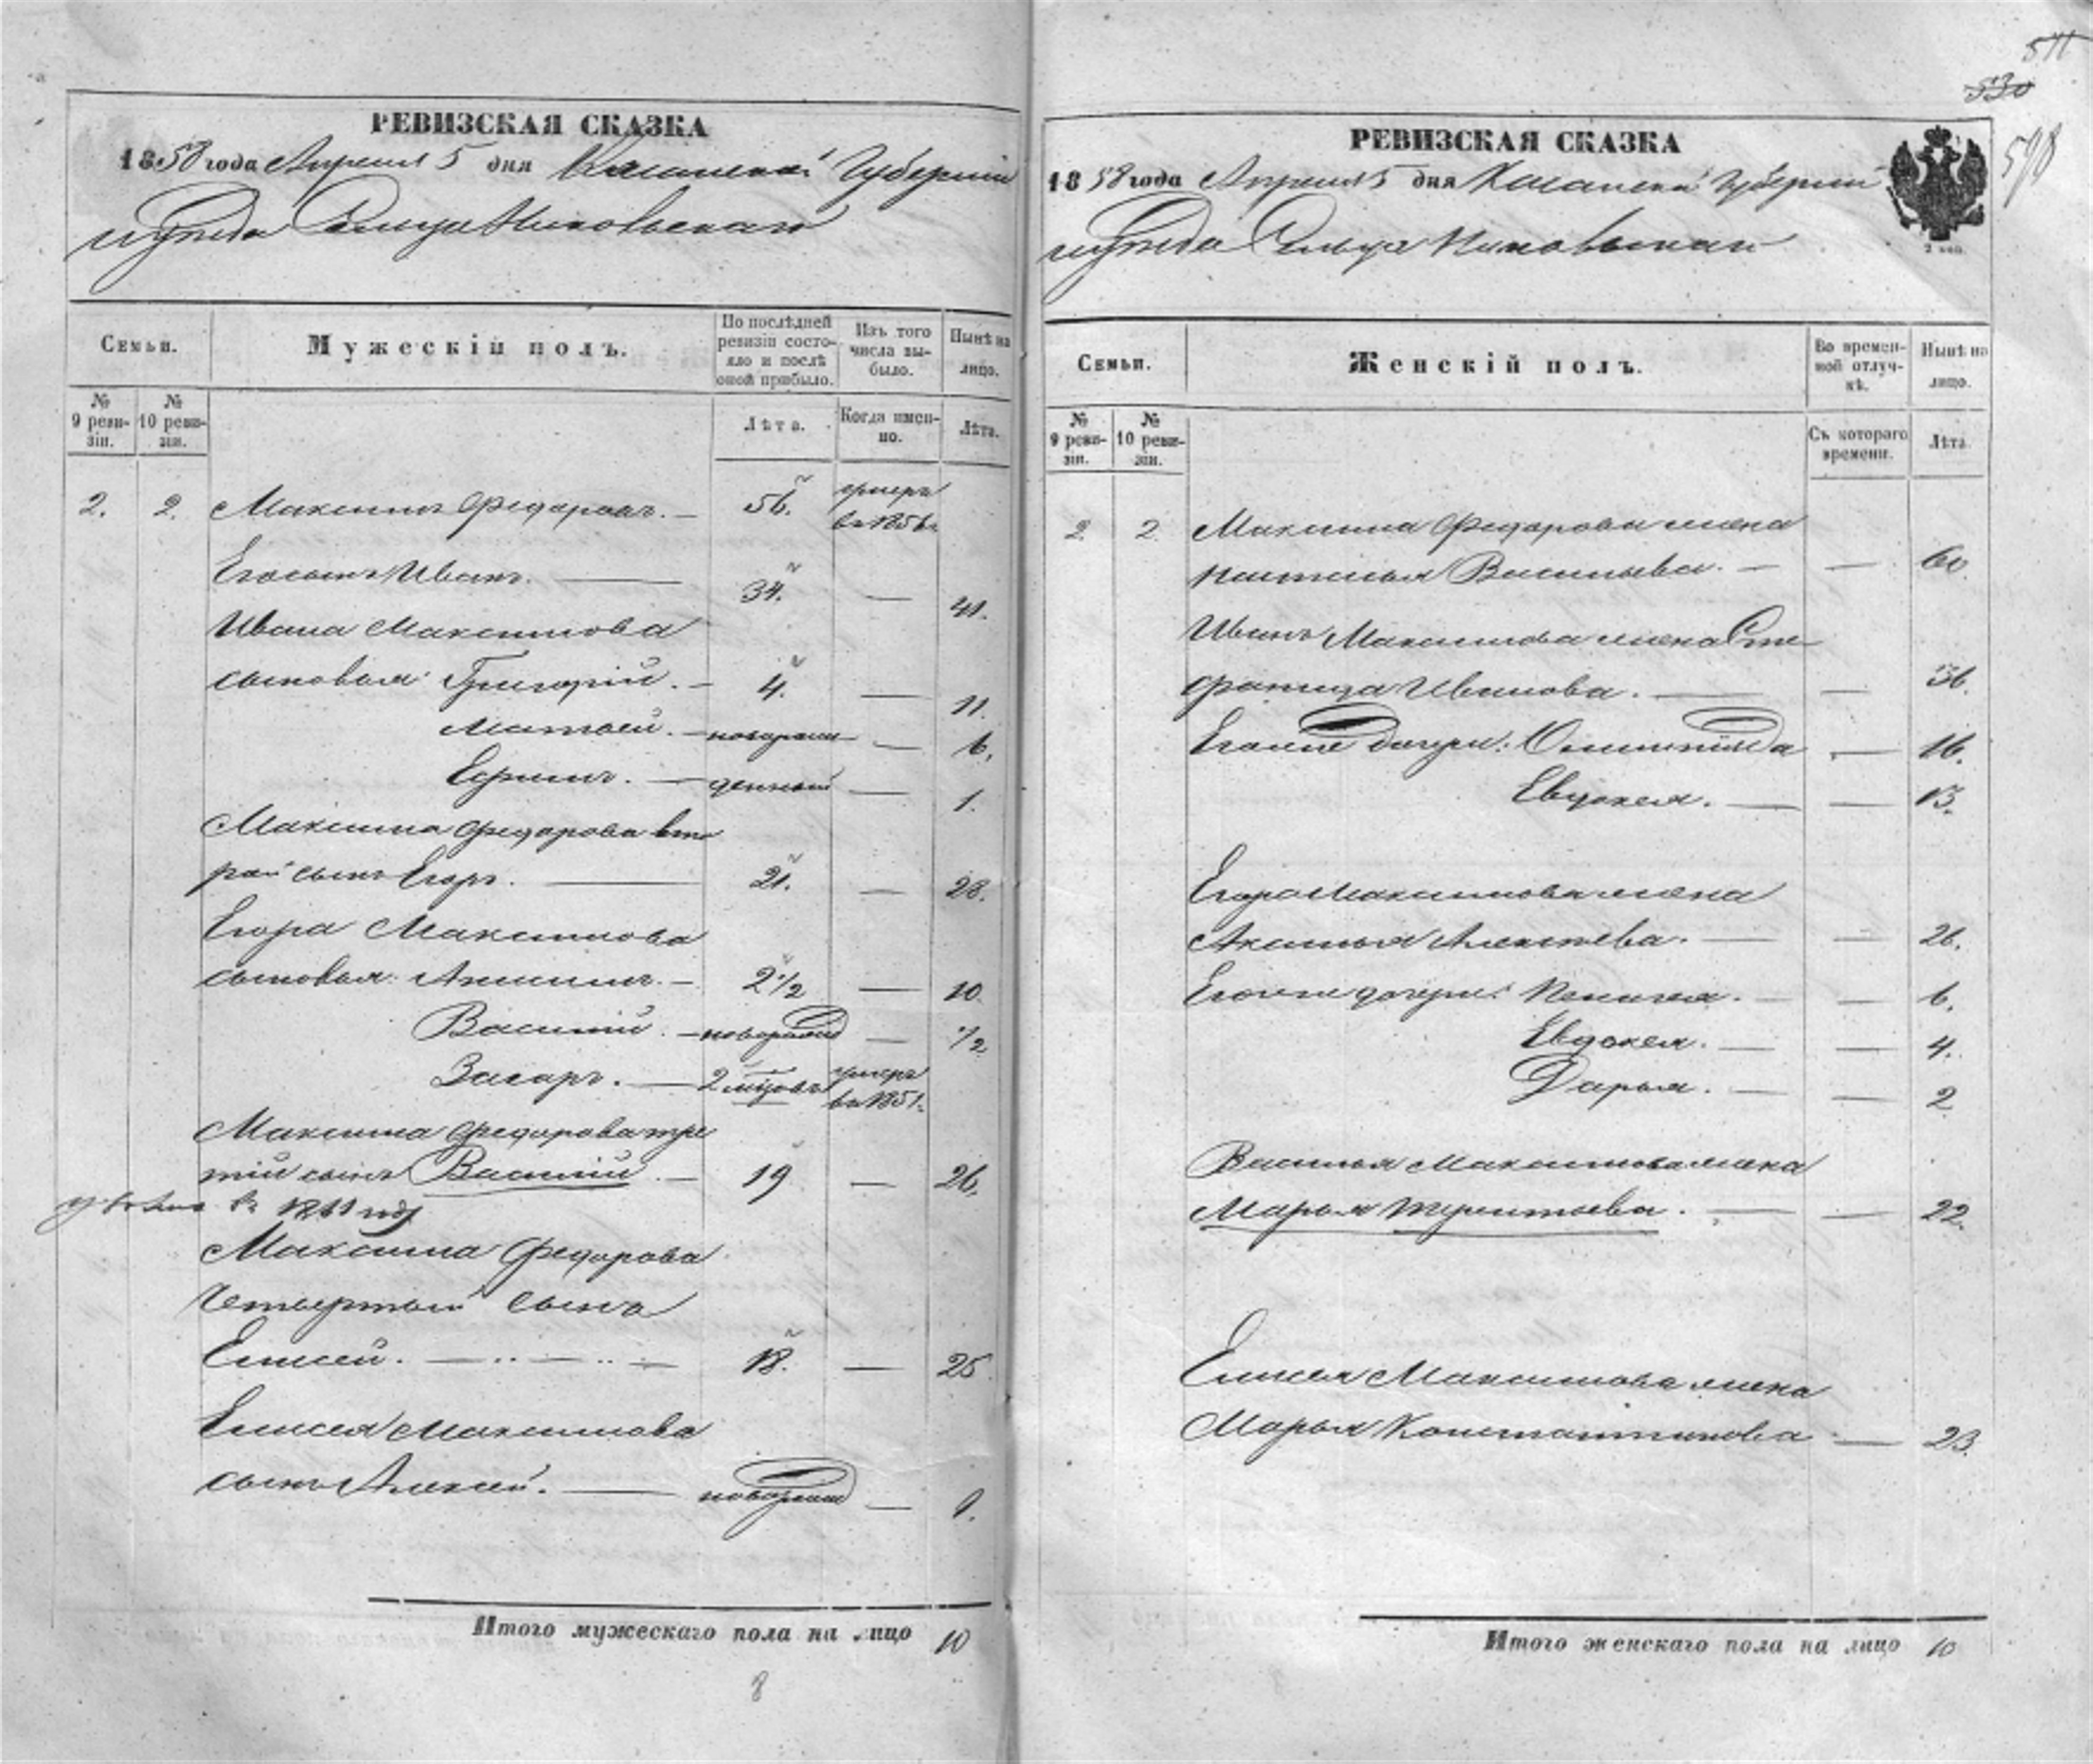 РЕВИЗСКАЯ СКАЗКА
1858 года Апреля 5 дня Казанской Губернии
уѣзда Сельца Никольскаго
Семьи.
Мужескій полъ.
По послѣдней ревизіи состояло и послѣ оной прибыло.
Изъ того числа выбыло.
Нынѣ на лицо.
№ 9 ревизіи.
№ 10 ревизіи.
Лѣта.
Когда именно.
Лѣта.
2. 2. Максимъ Федоровъ. — 56. умеръ въ 1856 г.
Его сынъ Иванъ. — 34. — 41.
Ивана Максимова
сыновья: Григорій. — 4. — 11.
Матвей. — новорож — 6.
Ефимъ. — денный — 1.
Максима Федорова вто
рой сынъ Егоръ. — 21. — 28.
Егора Максимова
сыновья: — 2 1/2 — 10.
Василій. — новорожд — 1/2
Захаръ. — 2 мѣсяц. умеръ въ 1851 г.
Максима Федорова тре
тій сынъ Василій. — 19 — 26.
въ 1861 году
Максима Федорова
Четвертый сынъ
Елисей. — 18. — 25
Елисея Максимова
сынъ Алексей. — новорожд — 1.
Итого мужескаго пола на лицо 10
8
511
530
598
РЕВИЗСКАЯ СКАЗКА
1858 года Апреля 5 дня Казанской Губернии
уѣзда Сельца Никольскаго
2 коп.
Семьи.
Женскій полъ.
Во временной отлучкѣ.
Нынѣ на лицо.
№ 9 ревизіи.
№ 10 ревизіи.
Съ котораго времени.
Лѣта.
2. 2. Максима Федорова жена
Настасья Васильева. — — 60.
Ивана Максимова жена Сте
фанида Иванова. — — 36.
Его же дочери: Олимпіяда — 16.
Евдокея. — — 13.
Егора Максимова жена
Аксинья Алексѣева. — — 26.
Его же дочери: Пелагея. — — 6.
Евдокея. — — 4.
Дарья. — — 2
Василья Максимова жена
Марья Терентьева. — — 22.
Елисея Максимова жена
Марья Константинова — 23.
Итого женскаго пола на лицо 10